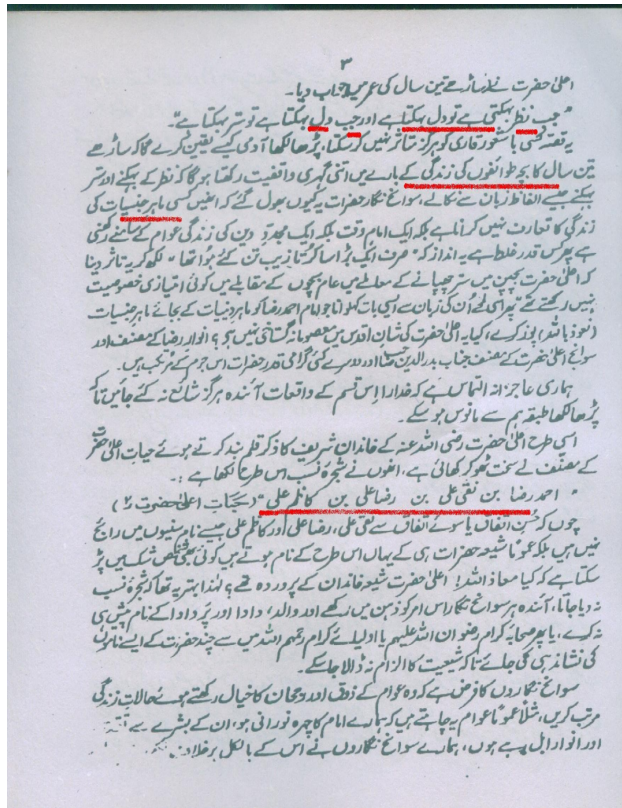 ۳
اعلیٰ حضرت نے ساڑھے تین سال کی عمر میں جواب دیا۔
"جب نظر بہکتی ہے تو دل بہکتا ہے اور جب دل بہکتا ہے تو ستر بہکتا ہے"۔
یہ قصہ کسی باشعور قاری کو ہرگز متاثر نہیں کر سکتا، پڑھا لکھا آدمی کیسے یقین کرے گا کہ ساڑھے
تین سال کا بچہ طوائفوں کی زندگی کے بارے میں اتنی گہری واقفیت رکھتا ہوگا کہ نظر کے بہکنے اور ستر
بہکنے جیسے الفاظ زبان سے نکالے، سوانح نگار حضرات یہ کیوں بھول گئے کہ انھیں کسی ماہر جنسیات کی
زندگی کا تعارف نہیں کرانا ہے بلکہ ایک امام وقت بلکہ ایک مجدد دین کی زندگی عوام کے سامنے رکھنی
ہے پھر کس قدر غلط ہے یہ انداز کہ "صرف ایک بڑا سا کرتا زیب تن کئے ہوا تھا" لکھ کر یہ تاثر دینا
کہ اعلیٰ حضرت بچپن میں ستر چھپانے کے معاملے میں عام بچوں کے مقابلے میں کوئی امتیازی خصوصیت
نہیں رکھتے تھے پھر اسی لمحے اُن کی زبان سے ایسی بات کہلوانا جو امام احمد رضا کو ماہر دینیات کے بجائے ماہر جنسیات
(نعوذ باللہ) پوز کرے، کیا یہ اعلیٰ حضرت کی شان اقدس میں معصومانہ گستاخی نہیں ہے؟ انوار رضا کے مصنف اور
سوانح اعلیٰ حضرت کے مصنف جناب بدر الدین صاحب اور دوسرے کئی گرامی قدر حضرات اس جرم کے مرتکب ہیں۔
ہماری عاجزانہ التماس ہے کہ خدارا! اس قسم کے واقعات آئندہ ہرگز شائع نہ کئے جائیں تاکہ
پڑھا لکھا طبقہ ہم سے مانوس ہو سکے۔
اسی طرح اعلیٰ حضرت رضی اللہ عنہ کے خاندان شریف کا ذکر قلم بند کرتے ہوئے حیات اعلیٰ حضرت
کے مصنف نے سخت ٹھوکر کھائی ہے، انھوں نے شجرۂ نسب اس طرح لکھا ہے :۔
"احمد رضا بن نقی علی بن رضا علی بن کاظم علی" (حیات اعلیٰ حضرت ۲)
چوں کہ حُسن اتفاق یا سوئے اتفاق سے نقی علی، رضا علی اور کاظم علی جیسے نام سنیوں میں رائج
نہیں ہیں بلکہ عموماً شیعہ حضرات ہی کے یہاں اس طرح کے نام ہوتے ہیں کوئی بھی شخص شک میں پڑ
سکتا ہے کہ کیا معاذ اللہ! اعلیٰ حضرت شیعہ خاندان کے پروردہ تھے؟ لہٰذا بہتر یہ تھا کہ شجرۂ نسب
نہ دیا جاتا، آئندہ ہر سوانح نگار اس امر کو ذہن میں رکھے اور والد، دادا اور پردادا کے نام پیش ہی
نہ کرے، یا پھر صحابۂ کرام رضوان اللہ علیہم یا اولیائے کرام رحمہم اللہ میں سے چند حضرات کے ایسے ناموں
کی نشاندہی کی جائے تاکہ شیعیت کا الزام نہ ڈالا جا سکے۔
سوانح نگاروں کا فرض ہے کہ وہ عوام کے ذوق اور رجحان کا خیال رکھتے ہوئے حالات زندگی
مرتب کریں، مثلاً عموماً عوام یہ چاہتے ہیں کہ ہمارے امام کا چہرہ نورانی ہو، ان کے بشرے سے
اور انوار ابل رہے ہوں، ہمارے سوانح نگاروں نے اس کے بالکل برخلاف